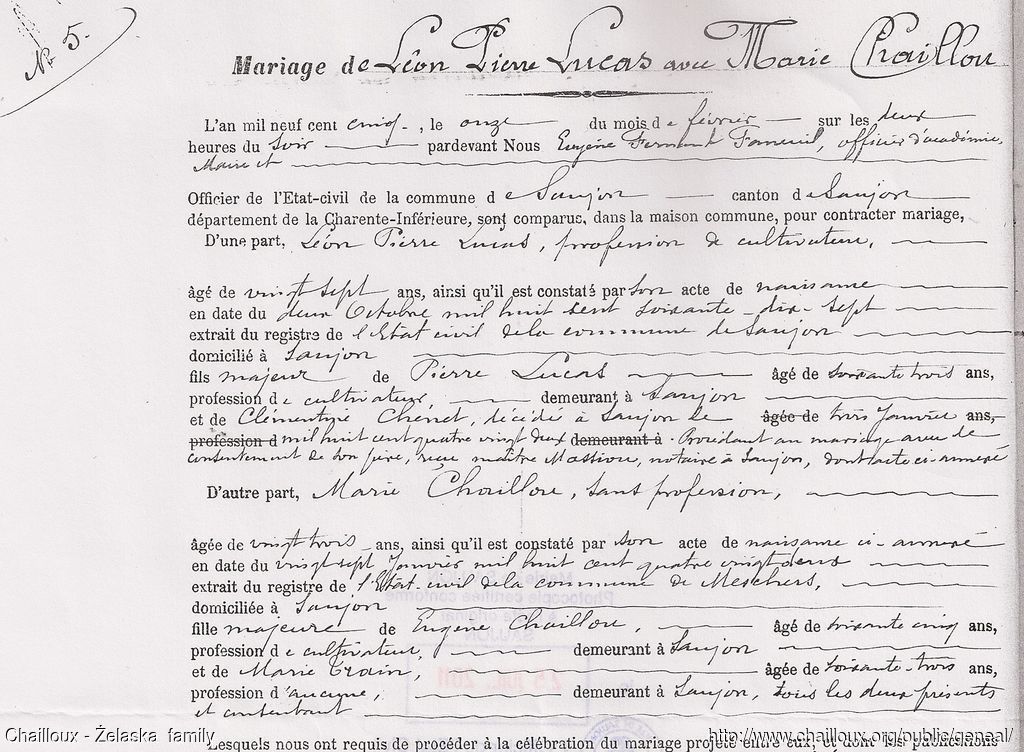 No 5.
Mariage de Léon Pierre Lucas avec Marie Chaillou
L'an mil neuf cent cinq, le onze du mois de février sur les deux
heures du soir pardevant Nous Eugène Fernand Fameuil, officier d'académie,
Maire et
Officier de l'Etat-civil de la commune de Saujon canton de Saujon
département de la Charente-Inférieure, sont comparus, dans la maison commune, pour contracter mariage,
D'une part, Léon Pierre Lucas, profession de cultivateur,
âgé de vingt sept ans, ainsi qu'il est constaté par son acte de naissance
en date du deux Octobre mil huit cent soixante-dix-sept
extrait du registre de l'Etat civil de la commune de Saujon
domicilié à Saujon
fils majeur de Pierre Lucas âgé de soixante trois ans,
profession de cultivateur, demeurant à Saujon
et de Clémentine Chénet, décédée à Saujon le âgée de trois Janvier ans,
profession d mil huit cent quatre vingt deux demeurant à. Procédant au mariage avec le
consentement de son père, reçu maître Massiou, notaire à Saujon, dont acte ci-annexé
D'autre part, Marie Chaillou, sans profession,
âgée de vingt trois ans, ainsi qu'il est constaté par son acte de naissance ci-annexé
en date du vingt sept Janvier mil huit cent quatre vingt deux
extrait du registre de l'Etat civil de la commune de Meschers,
domiciliée à Saujon
fille majeure de Eugène Chaillou, âgé de soixante cinq ans,
profession de cultivateur, demeurant à Saujon
et de Marie Train, âgée de soixante-trois ans,
profession d'aucune, demeurant à Saujon, tous les deux présents
et consentant
Lesquels nous ont requis de procéder à la célébration du mariage projeté entre eux, et dont les publications
Photocopie certifiée conforme
à l'acte original
SAUJON
2011
Chailloux - Żelaska family
http://www.chailloux.org/public/geneal/